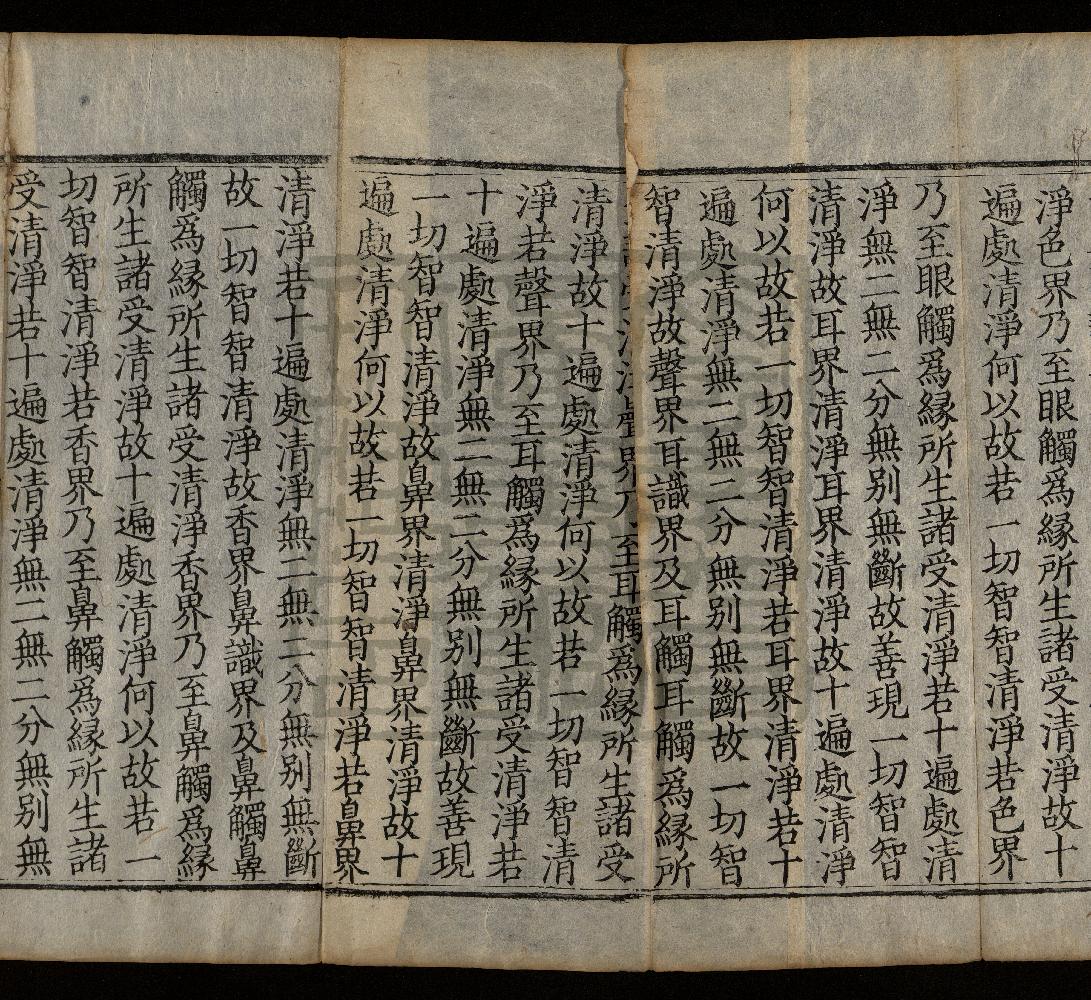 淨色界乃至眼觸爲緣所生諸受清淨故十
遍處清淨何以故若一切智智清淨若色界
乃至眼觸爲緣所生諸受清淨若十遍處清
淨無二無二分無别無斷故善現一切智智
清淨故耳界清淨耳界清淨故十遍處清淨
何以故若一切智智清淨若耳界清淨若十
遍處清淨無二無二分無别無斷故一切智
智清淨故聲界耳識界及耳觸耳觸爲緣所
聲界乃至耳觸爲緣所生諸受
清淨故十遍處清淨何以故若一切智智清
淨若聲界乃至耳觸爲緣所生諸受清淨若
十遍處清淨無二無二分無别無斷故善現
一切智智清淨故鼻界清淨鼻界清淨故十
遍處清淨何以故若一切智智清淨若鼻界
清淨若十遍處清淨無二無二分無别無斷
故一切智智清淨故香界鼻識界及鼻觸鼻
觸爲緣所生諸受清淨香界乃至鼻觸爲緣
所生諸受清淨故十遍處清淨何以故若一
切智智清淨若香界乃至鼻觸爲緣所生諸
受清淨若十遍處清淨無二無二分無别無